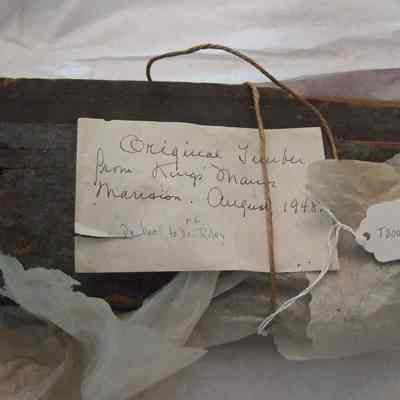 Original Timber
from King's Manor
Mansion. August 1948.
to Dr. Riley
T200